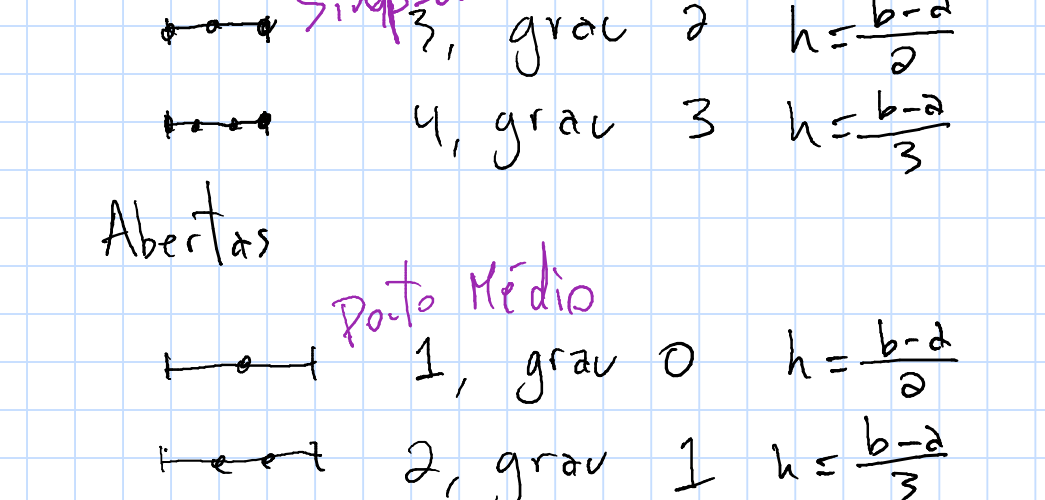 3, grau 2 h = b-a/2
4, grau 3 h = b-a/3
Abertas
Ponto Médio
1, grau 0 h = b-a/2
2, grau 1 h = b-a/3